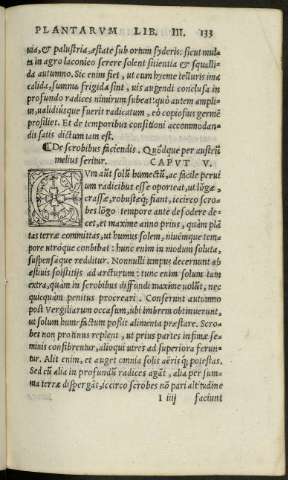 PLANTARVM LIB. III. 133
uia, & palustria, æstate sub ortum syderis: sicut mul
ta in agro laconico serere solent siuentia & squilli
da autumno. Sic enim fiet, ut cum hyeme telluris ima
calida, summa frigida sint, uis augendi conclusa in
profundo radices nimirum subeat: quò autem ampli⸗
us, ualidiusque fuerit radicatum, eò copiosius germē
prosiliet. Et de temporibus consitioni accommodan⸗
dis satis dictum iam est.
De scrobibus faciendis. Quódque per austrū
melius seritur. CAPVT V.
QVm aūt solū humectū, ac facile perui
um radicibus esse oporteat, ut lōgæ,
crassæ, robustæq́; fiant, iccirco scro⸗
bes lōgo tempore ante desodere de⸗
cet, et maxime anno prius, quàm plā
tas terræ committas, ut humus solem, niuémque tem⸗
pore utróque combibat: hunc enim in modum soluta,
suspensáque redditur. Nonnulli tempus decernunt ab
æstiuis solstitijs ad arcturum: tunc enim solum tam
extra, quàm in scrobibus diffundi maxime uolūt, nec
quicquam penitus procreari. Conserunt autumno
post Vergiliarum occasum, ubi imbrem obtinuerunt,
ut solum humectum possit alimenta præstare. Scro⸗
bes non protinus replent, ut prius partes infimæ se⸗
minis confibrentur, alioqui utres ad superiora ferun⸗
tur. Alit enim, et auget omnia solis aëris q́; potestas.
Sed cū alia in profundū radices agāt, alia per sum⸗
ma terræ dispergāt, iccirco scrobes nō pari altitudine
I iiij faciunt